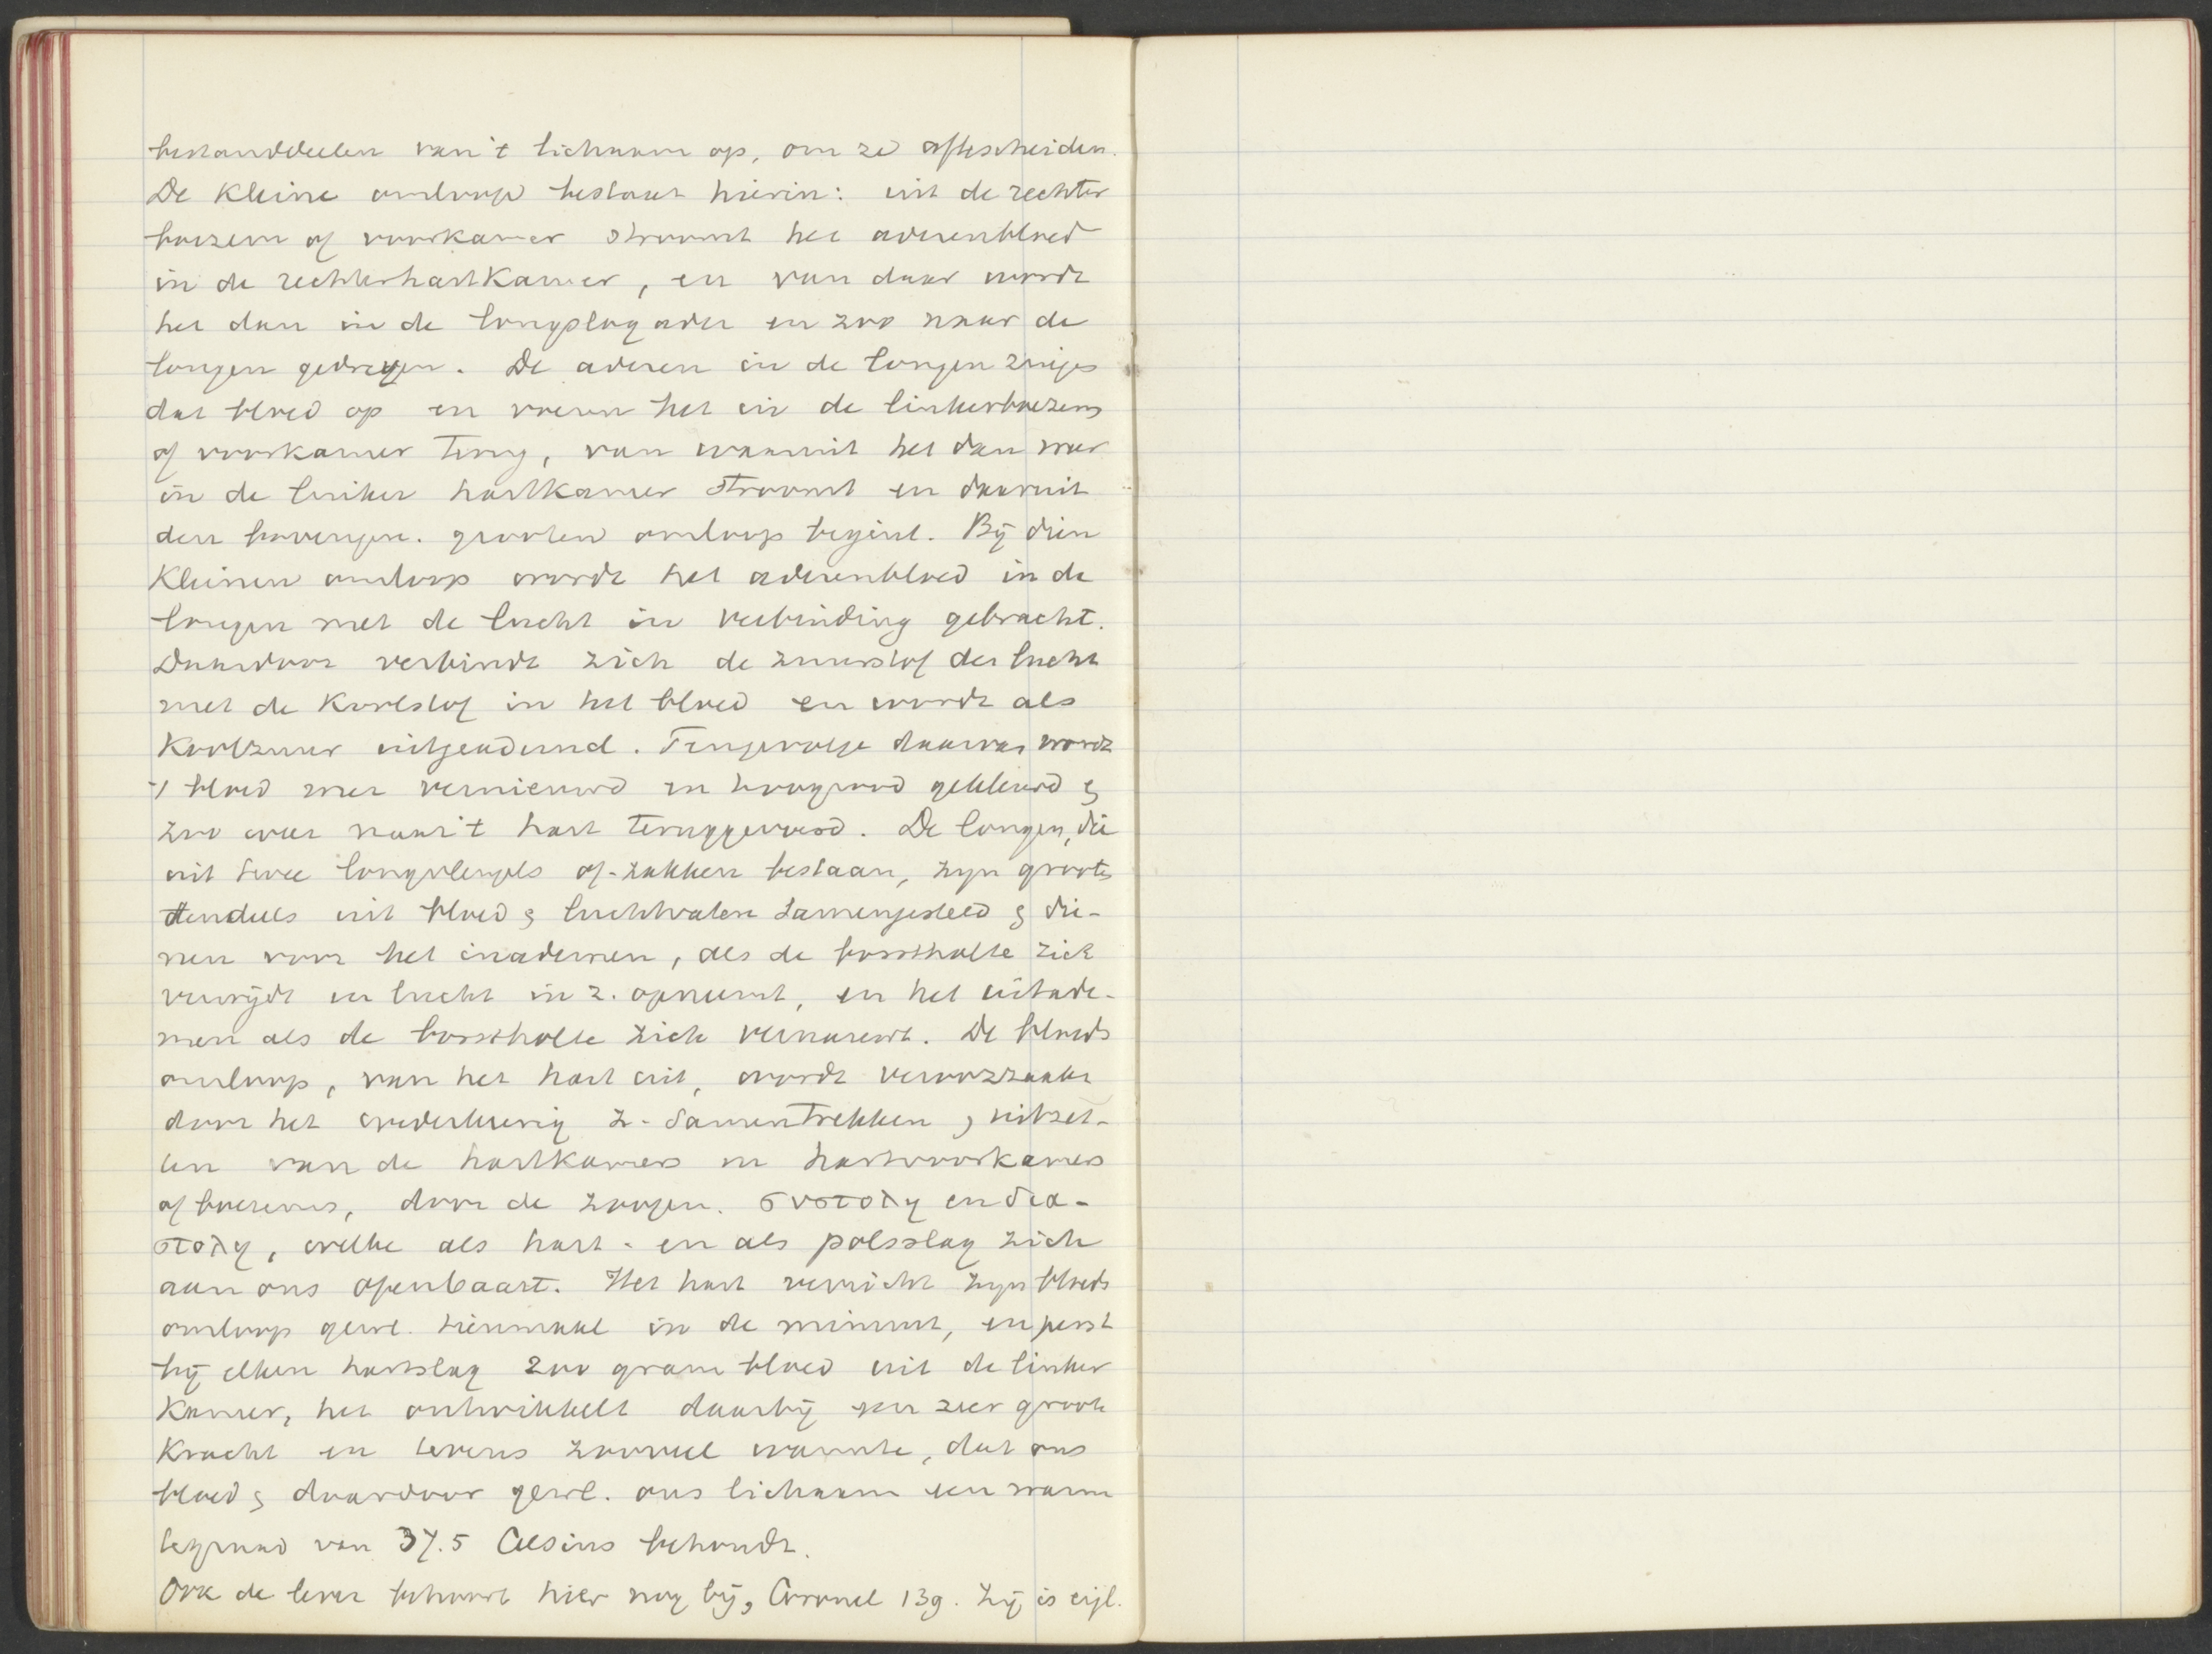 bestanddeelen van 't lichaam op, om ze aftescheiden.
De kleine omloop bestaat hierin: uit de rechter
boezem of voorkamer stroomt het aderenbloed
in de rechterhartkamer, en van daar wordt
het dan in de longslagader en zoo naar de
longen gedreven. De aderen in de longen zuigen
dat bloed op en voeren het in de linkerboezem
of voorkamer terug, van waaruit het dan weer
in de linker hartkamer stroomt en daaruit
den bovengen. grooten omloop begint. Bij dien
kleinen omloop wordt het aderenbloed in de
longen met de lucht in verbinding gebracht.
Daardoor verbindt zich de zuurstof der lucht
met de koolstof in het bloed en wordt als
koolzuur uitgeademd. Tengevolge daarvan wordt
't bloed weer vernieuwd en hoogrood gekleurd &
zoo weer naar 't hart teruggevoerd. De longen, die
uit twee longvleugels of -zakken bestaan, zijn groots
tendeels uit bloed & luchtvaten samengesteld & die-
nen voor het inademen, als de borstholte zich
verwijdt en lucht in z. opneemt, en het uitade-
men als de borstholte zich vernauwt. De bloeds
omloop, van het hart uit, wordt veroorzaakt
door het wederkeerig z. samentrekken & uitzet-
ten van de hartkamers en hartvoorkamers
of boezems, door de zoogen. συστολη en δια-
στολη, welke als hart- en als polsslag zich
aan ons openbaart. Het hart verricht zijn bloeds
omloop gew. tienmaal in de minuut, en perst
bij elken hartslag 200 gram bloed uit de linker
kamer, het ontwikkelt daarbij een zeer groote
kracht en tevens zooveel warmte, dat ons
bloed & daardoor gew. ons lichaam een warm
tegraad van 37.5 Celsius behoudt.
Ook de lever behoort hier nog bij, 139. Zij is eigl.